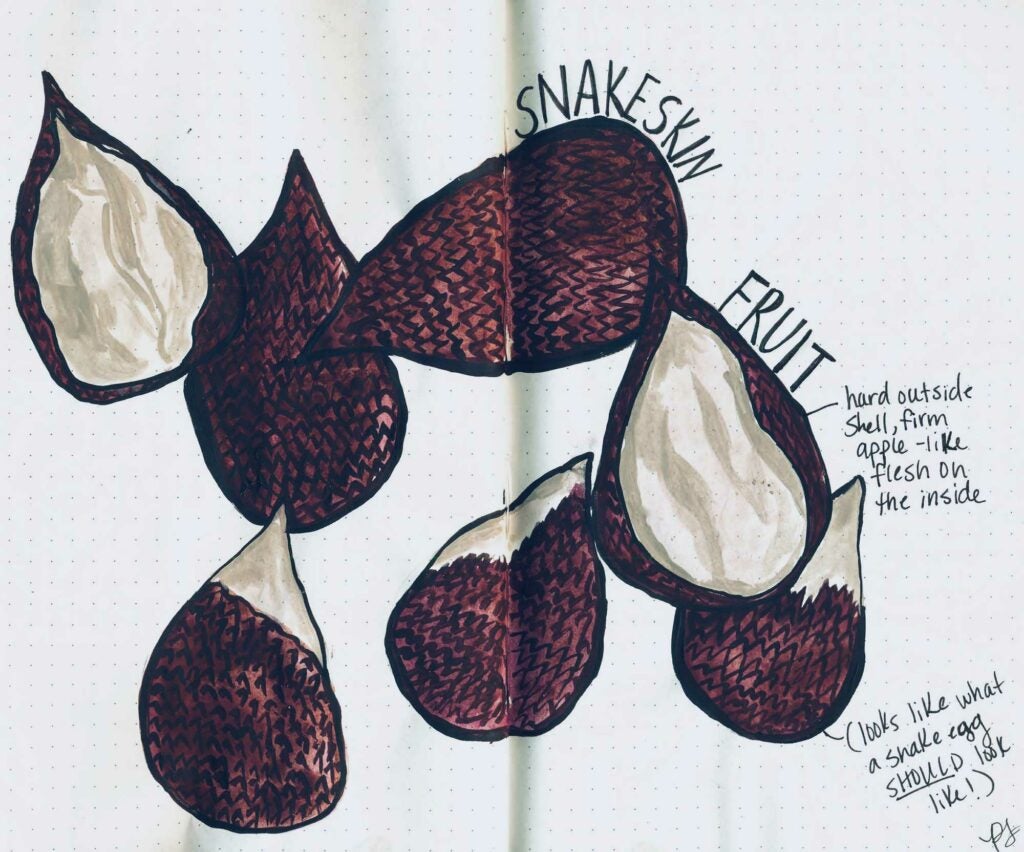 SNAKESKIN
FRUIT
hard outside
shell, firm
apple-like
flesh on
the inside
(looks like what
a snake egg
SHOULD look
like!)